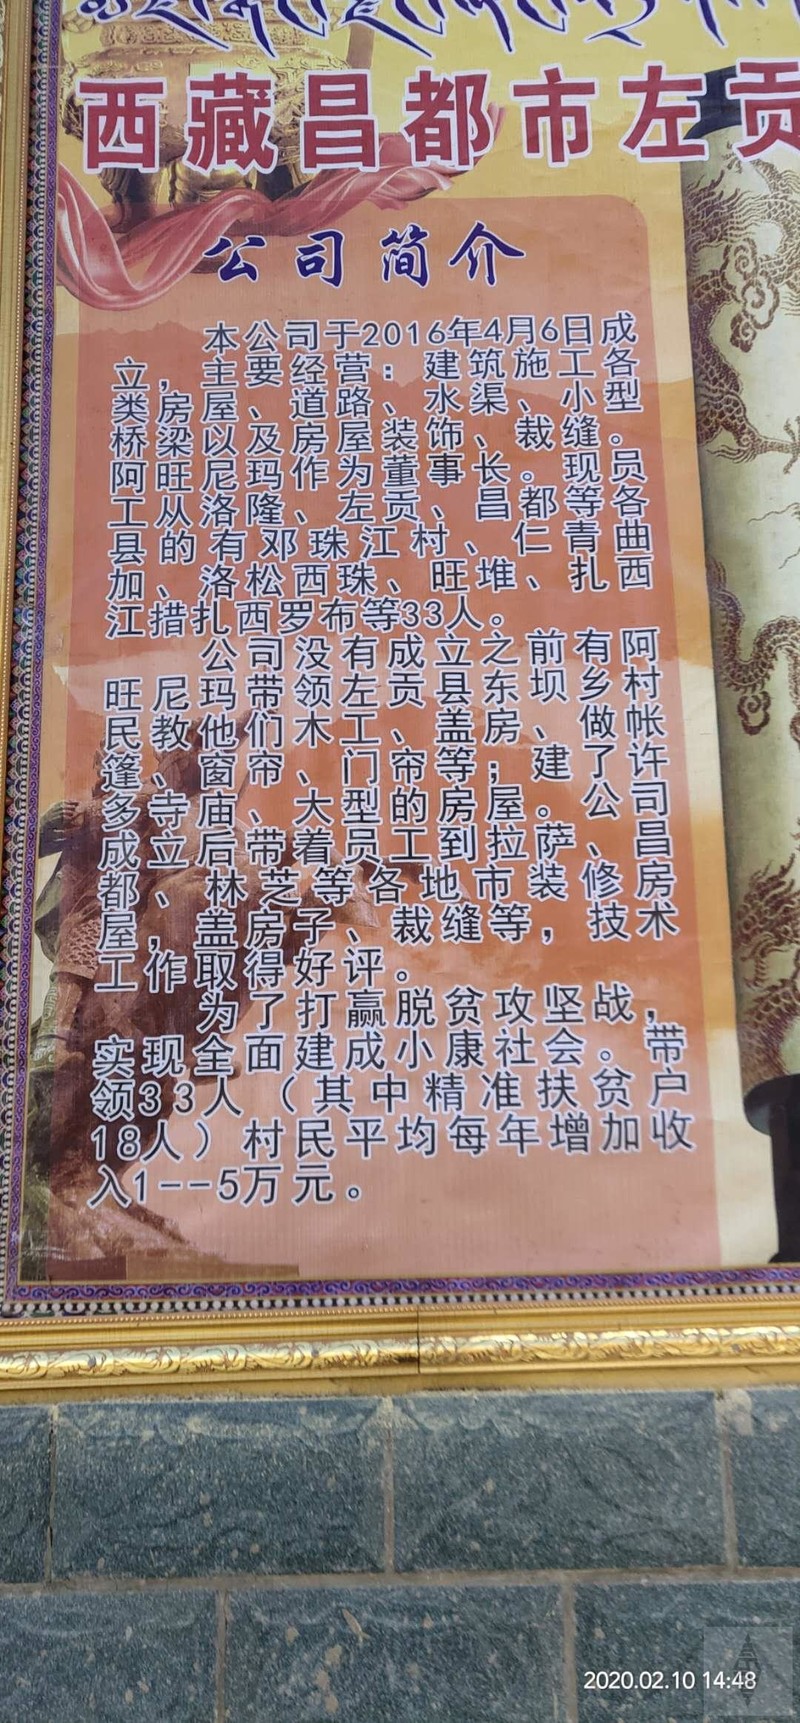 西藏昌都市左贡
公司简介
本公司于2016年4月6日成
立，主要经营：建筑施工各
类房屋、道路、水渠、小型
桥梁以及房屋装饰、裁缝。
阿旺尼玛作为董事长。现员
工从洛隆、左贡、昌都等各
县的有邓珠江村、仁青曲
加、洛松西珠、旺堆、扎西
江措、扎西罗布等33人。
公司没有成立之前有阿
旺尼玛带领左贡县东坝乡村
民教他们木工、盖房、做帐
篷、窗帘、门帘等；建了许
多寺庙、大型的房屋。公司
成立后带着员工到拉萨、昌
都、林芝等各地市装修房
屋，盖房子、裁缝等，技术
工作取得好评。
为了打赢脱贫攻坚战，
实现全面建成小康社会。带
领33人（其中精准扶贫户
18人）村民平均每年增加收
入1--5万元。
2020.02.10 14:48